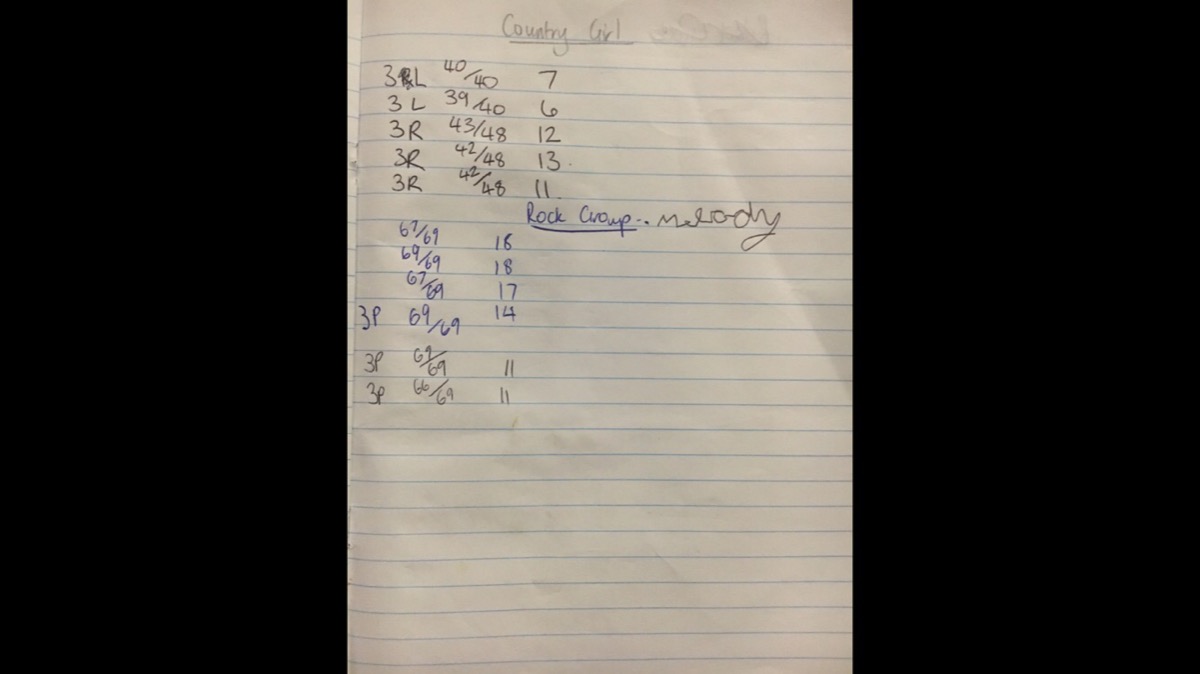 Country Girl
3L 40/40 7
3L 39/40 6
3R 43/48 12
3R 42/48 13.
3R 42/48 11.
Rock Group.. melody
67/69 18
69/69 18
67/69 17
3P 69/69 14
3P 69/69 11
3P 66/69 11